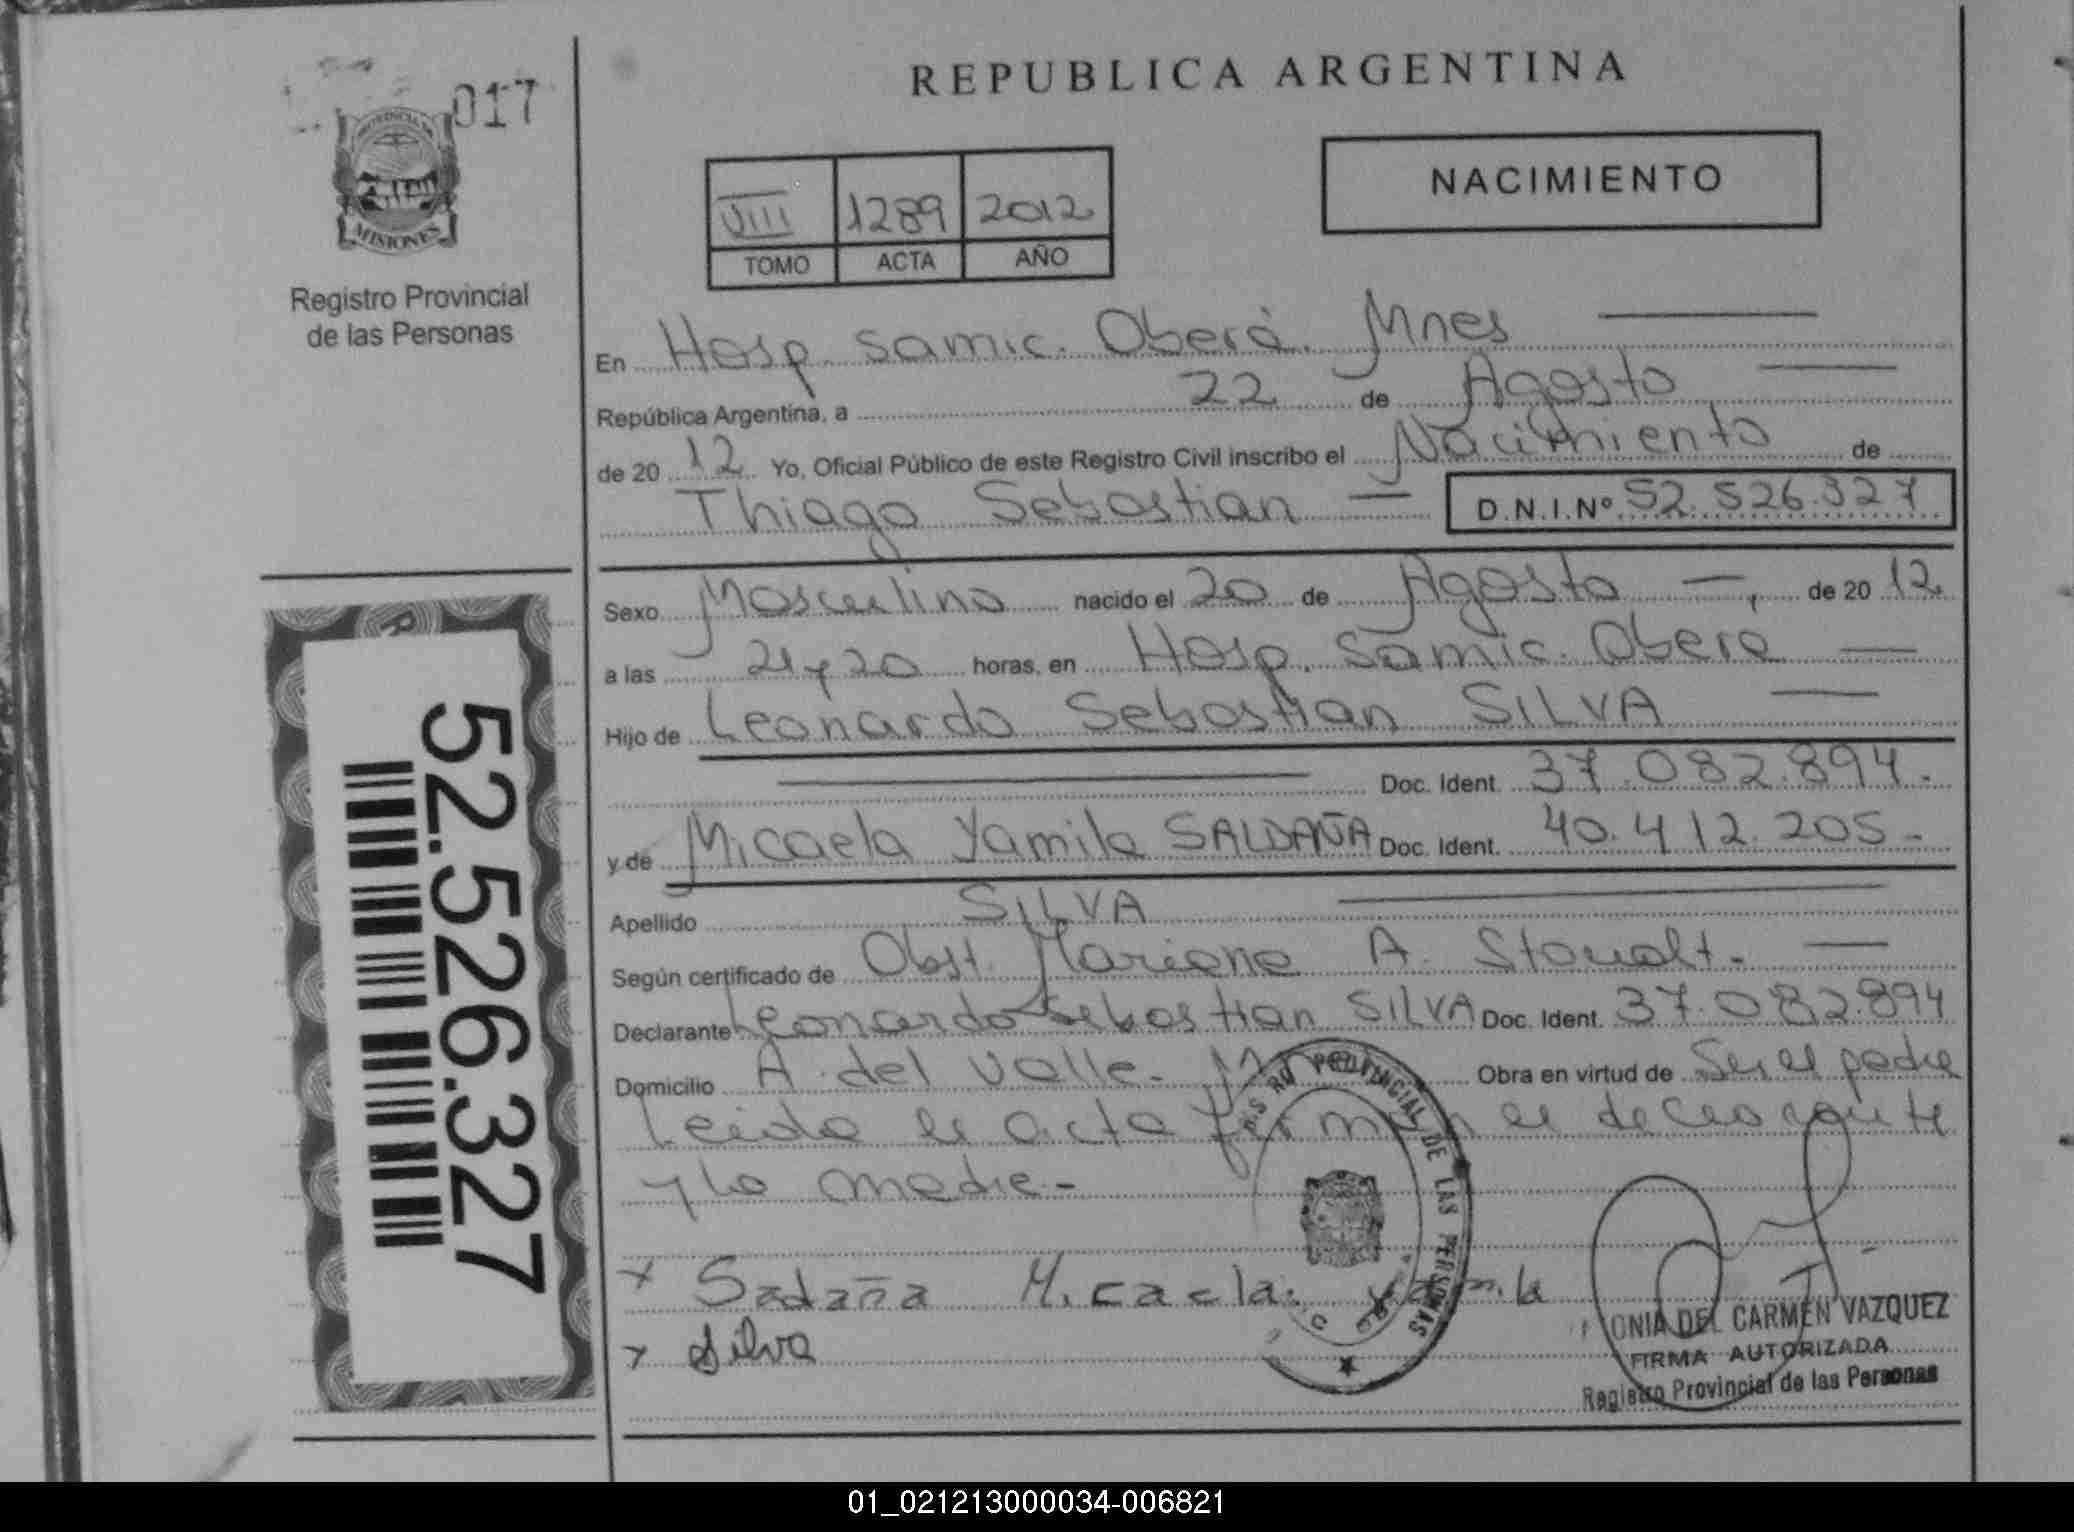 REPUBLICA ARGENTINA
017
PROVINCIA DE
MISIONES
Registro Provincial
de las Personas
NACIMIENTO
VIII 1289 2012
TOMO ACTA AÑO
En Hosp. Samic. Oberá. Mnes
República Argentina, a 22 de Agosto
de 20 12 Yo, Oficial Público de este Registro Civil inscribo el Nacimiento de
Thiago Sebastian D.N.I.Nº 52.526.327
Sexo Masculino nacido el 20 de Agosto , de 20 12
a las 21 y 20 horas, en Hosp. Samic. Oberá
Hijo de Leonardo Sebastian SILVA
Doc. Ident. 37.082.894.
y de Micaela Yamila SALDAÑA Doc. Ident. 40.412.205.
Apellido SILVA
Según certificado de Obst. Mariana A.
Declarante Leonardo Sebastian SILVA Doc. Ident. 37.082.894
Domicilio A. del Valle. Obra en virtud de Ser el padre
Leida el acta firman el
y la madre.
x Sadaña Micaela Yamila
x Silva
PROVINCIAL DE LAS PERSONAS
ONIA DEL CARMEN VAZQUEZ
FIRMA AUTORIZADA
Registro Provincial de las Personas
52.526.327
01_021213000034-006821